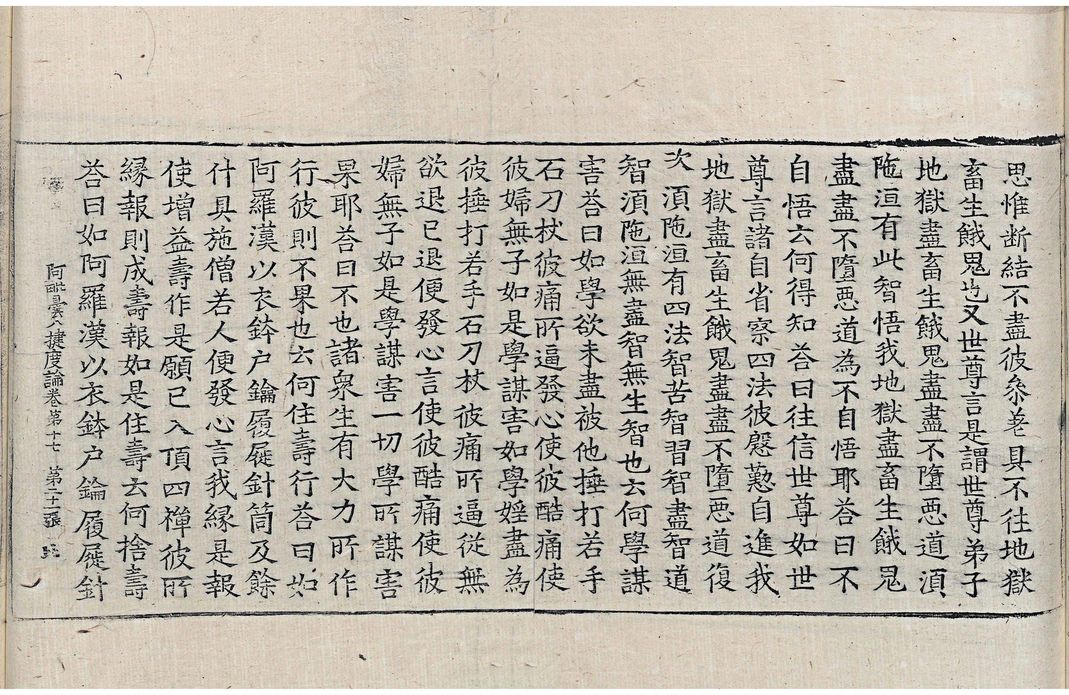 思惟断結不盡彼㕘差具不往地獄
畜生餓鬼也又世尊言是謂世尊弟子
地獄盡畜生餓鬼盡盡不墮惡道湏
陁洹有此智悟我地獄盡畜生餓鬼
盡盡不墮惡道為不自悟耶荅曰不
自悟云何得知荅曰往信世尊如世
尊言諸自省察四法彼慇懃自進我
地獄盡畜生餓鬼盡盡不墮惡道復
次湏陁洹有四法智苦智習智盡智道
智湏陁洹無盡智無生智也云何學謀
害荅曰如學欲未盡被他捶打若手
石刀杖彼痛所逼發心使彼酷痛使
彼婦無子如是學謀害如學婬盡為
彼捶打若手石刀杖彼痛所逼從無
欲退已退便發心言使彼酷痛使彼
婦無子如是學謀害一切學所謀害
果耶荅曰不也諸衆生有大力所作
行彼則不果也云何住壽行荅曰如
阿羅漢以衣鉢户鑰履屣針筒及餘
什具施僧若人便發心言我縁是報
使增益壽作是願已入頂四禪彼所
縁報則成壽報如是住壽云何捨壽
荅曰如阿羅漢以衣鉢户鑰履屣針
阿毗曇八揵度論卷第十七 第二十二張